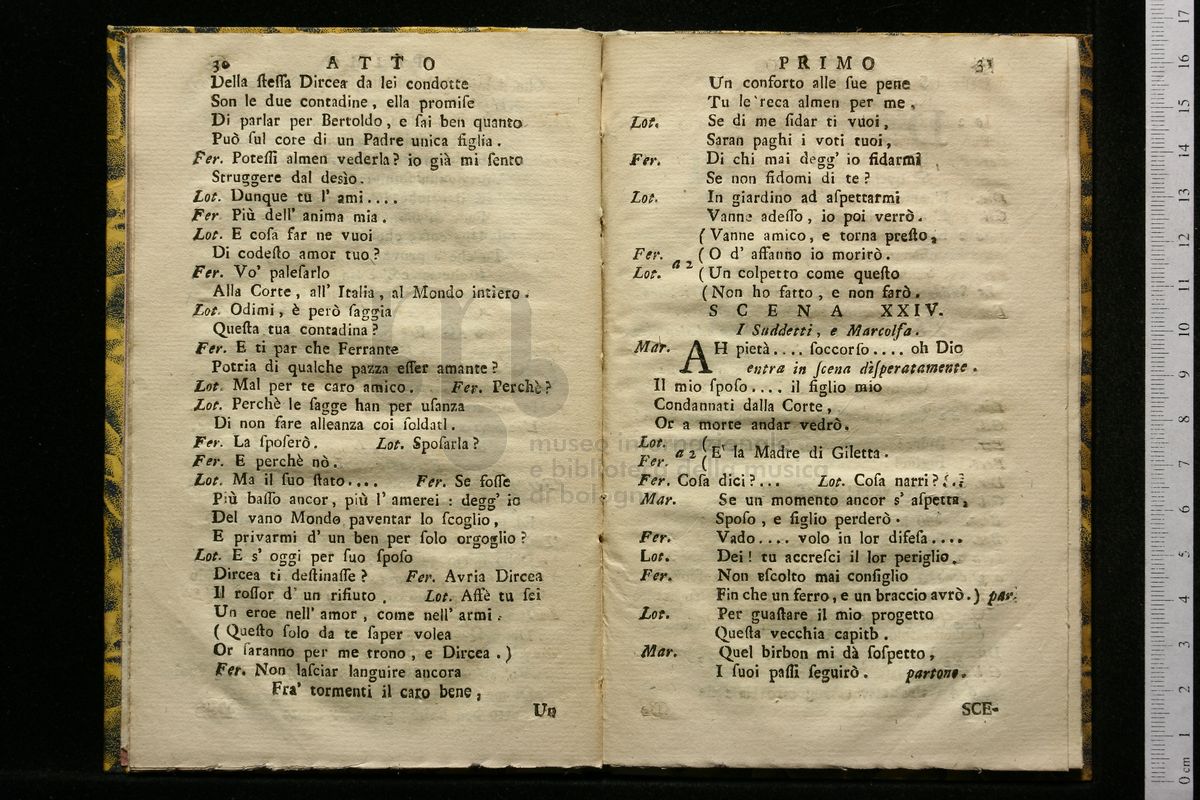 30 ATTO
Della ſteſſa Dircea da lei condotte
Son le due contadine, ella promiſe
Di parlar per Bertoldo, e ſai ben quanto
Può ſul core di un Padre unica figlia.
Fer. Poteſſi almen vederla? io già mi ſento
Struggere dal desìo.
Lot. Dunque tu l' ami....
Fer. Più dell' anima mia.
Lot. E coſa far ne vuoi
Di codeſto amor tuo?
Fer. Vo' paleſarlo
Alla Corte, all' Italia, al Mondo intiero.
Lot. Odimi, è però ſaggia
Queſta tua contadina?
Fer. E ti par che Ferrante
Potria di qualche pazza eſſer amante?
Lot. Mal per te caro amico. Fer. Perchè?
Lot. Perchè le ſagge han per uſanza
Di non fare alleanza coi ſoldati.
Fer. La ſpoſerò. Lot. Spoſarla?
Fer. E perchè nò.
Lot. Ma il ſuo ſtato.... Fer. Se foſſe
Più baſſo ancor, più l' amerei: degg' io
Del vano Mondo paventar lo ſcoglio,
E privarmi d' un ben per ſolo orgoglio?
Lot. E s' oggi per ſuo ſpoſo
Dircea ti deſtinaſſe? Fer. Avria Dircea
Il roſſor d' un rifiuto. Lot. Affè tu ſei
Un eroe nell' amor, come nell' armi.
(Queſto ſolo da te ſaper volea
Or ſaranno per me trono, e Dircea.)
Fer. Non laſciar languire ancora
Fra' tormenti il caro bene,
Un
PRIMO 31
Un conforto alle ſue pene
Tu le reca almen per me,
Lot. Se di me fidar ti vuoi,
Saran paghi i voti tuoi,
Fer. Di chi mai degg' io fidarmi
Se non fidomi di te?
Lot. In giardino ad aſpettarmi
Vanne adeſſo, io poi verrò.
(Vanne amico, e torna preſto,
Fer. (O d' affanno io morirò.
Lot. a 2 (Un colpetto come queſto
(Non ho fatto, e non farò.
SCENA XXIV.
I Suddetti, e Marcolfa.
Mar. AH pietà.... ſoccorſo.... oh Dio
entra in ſcena diſperatamente.
Il mio ſpoſo.... il figlio mio
Condannati dalla Corte,
Or a morte andar vedrò.
Lot. Fer. a 2 (E' la Madre di Giletta.
Fer. Coſa dici?... Lot. Coſa narri?...
Mar. Se un momento ancor s' aſpetta,
Spoſo, e figlio perderò.
Fer. Vado.... volo in lor difeſa....
Lot. Dei! tu accreſci il lor periglio.
Fer. Non aſcolto mai conſiglio
Fin che un ferro, e un braccio avrò.) par.
Lot. Per guaſtare il mio progetto
Queſta vecchia capitò.
Mar. Quel birbon mi dà ſoſpetto,
I ſuoi paſſi ſeguirò. partono.
SCE-
museo internazionale
e biblioteca della musica
di bologna
0 cm 1 2 3 4 5 6 7 8 9 10 11 12 13 14 15 16 17